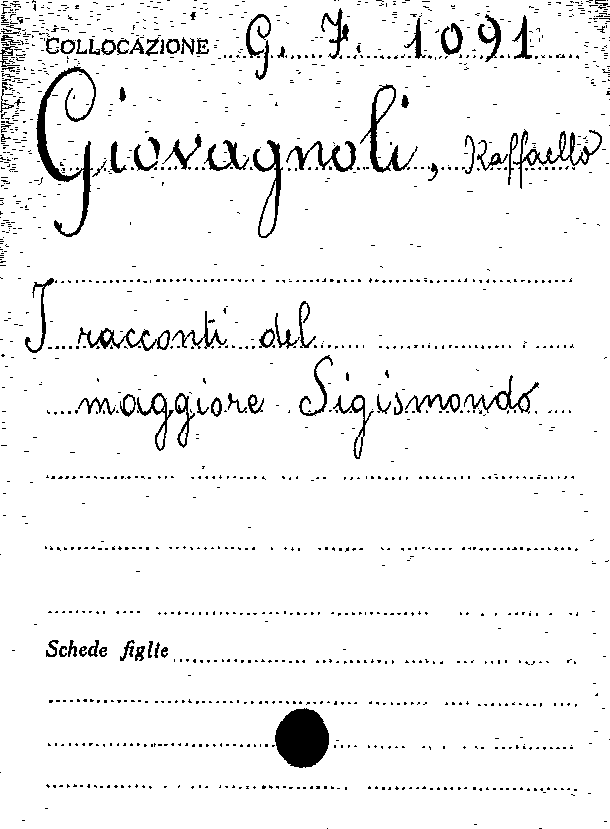 COLLOCAZIONE G. F. 1091
Giovagnoli, Raffaello
I racconti del
maggiore Sigismondo
Schede figlie